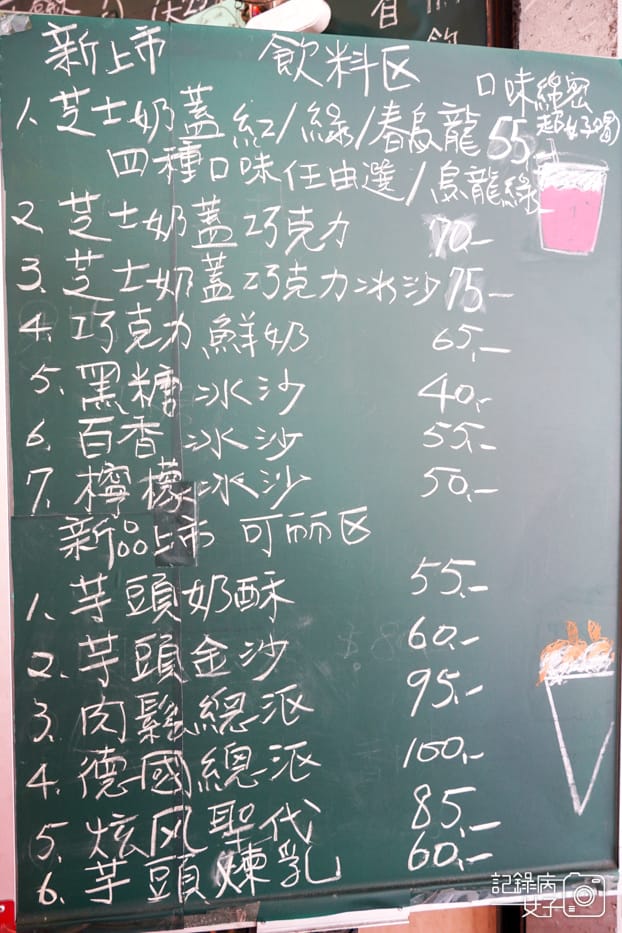 新上市 飲料区
口味綿密
超好喝
1、芝士奶蓋紅/綠/春烏龍 55
四種口味任由選/烏龍綠
2 芝士奶蓋巧克力 70.-
3、芝士奶蓋巧克力冰沙 75-
4、巧克力鮮奶 65.-
5、黑糖冰沙 40.-
6、百香冰沙 55.-
7、檸檬冰沙 50.-
新品上市 可丽区
1、芋頭奶酥 55.-
2、芋頭金沙 60.-
3、肉鬆總派 95.-
4、德國總派 100.-
5、炫风聖代 85.-
6、芋頭煉乳 60.-
記錄病
女子